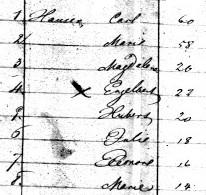 1 Hansen Carl 60
2 Marie 58
3 Magdalena 26
4 x Engelbert 22
5 Hubert 20
6 Julie 18
7 Eleonore 16
8 Marie 14